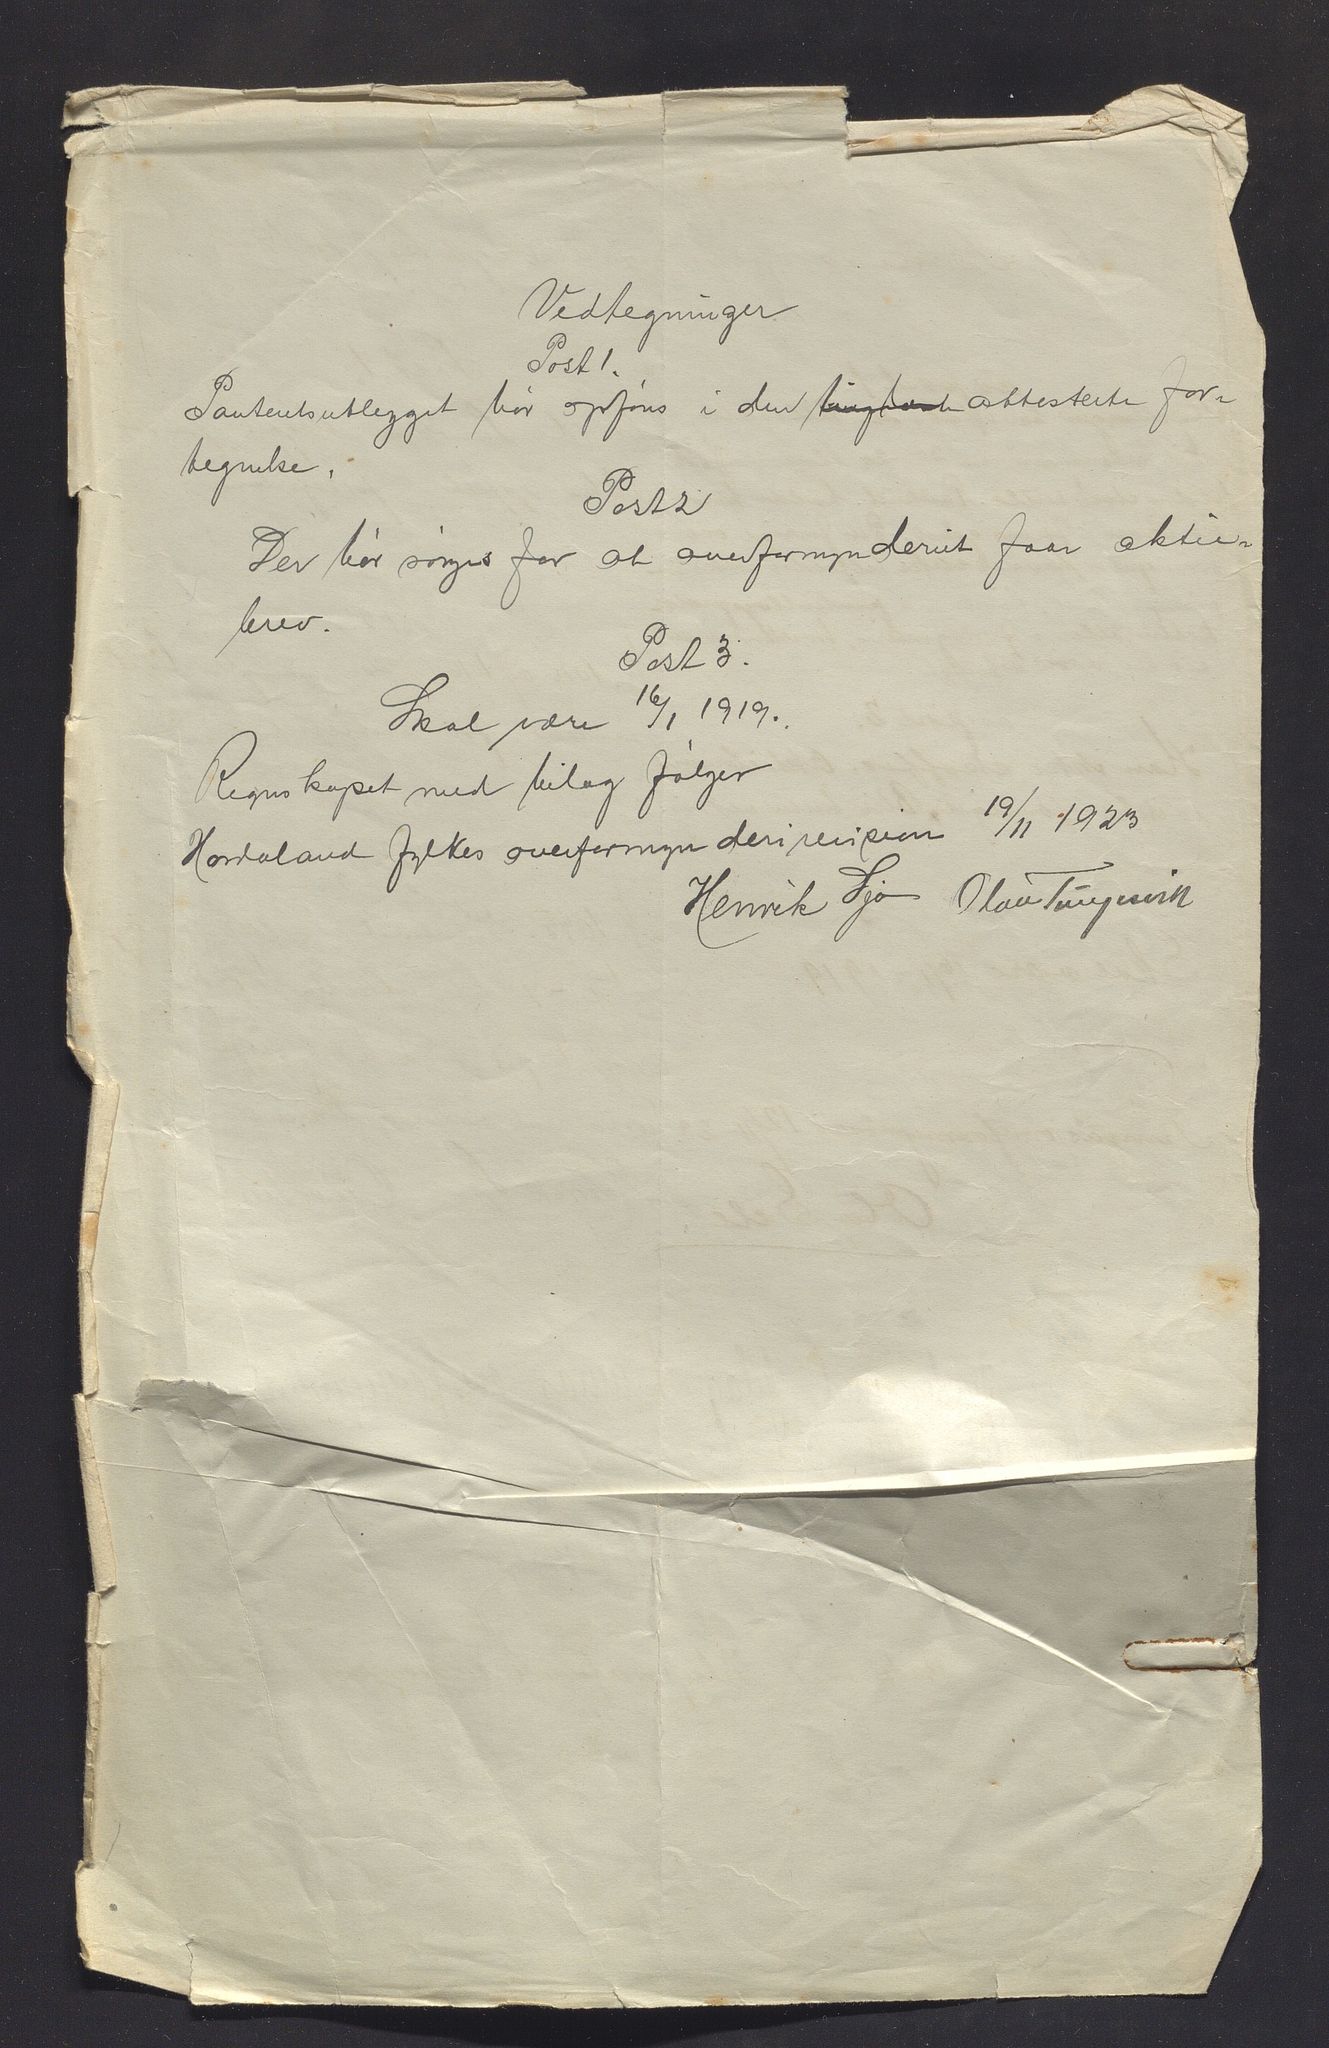 Vedtegninger
Post 1.
Panteutlegget bör opföres i den attesterte for-
tegnelse.
Post 2
Der bör sörges for at overformynderiet faar aktie-
brev.
Post 3.
Skal være 16/1 1919.
Regnskapet med bilag fölger
Hordaland fylkes overformynderirevision 19/11 1923
Henrik Sjo Olav Tungesvik